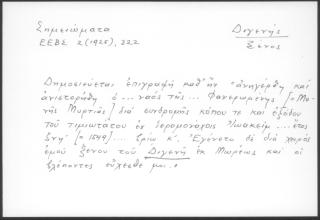 Σημειώματα
Διγενής
ΕΕΒΣ 2 (1925), 222
Ξένος
Δημοσιεύεται ἐπιγραφὴ καθ' ἣν "ἀνηγέρθη καὶ
ἀνιστορήθη ὁ ... ναὸς τῆς ... Φανερωμένης [=Μο-
νῆς Μυρτιᾶς] διὰ συνδρομῆς κόπου τε καὶ ἐξόδου
τοῦ τιμιωτάτου ἐν ἱερομονάχοις Ἰωακεὶμ ... ἔτος
[= 1549] .... κ΄. Ἐγένετο δὲ διὰ χειρὸς
ἐμοῦ ξένου τοῦ Διγενῆ ἐκ Μωρέως καὶ οἱ
βλέποντες εὔχεσθέ μοι."